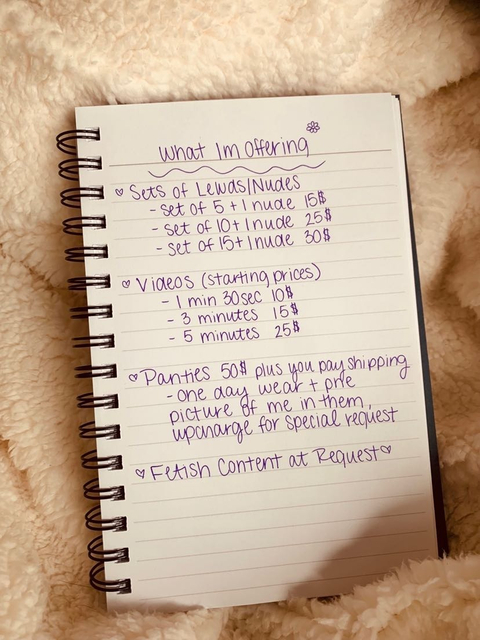 What Im Offering
♡ Sets of Lewds/Nudes
- set of 5 + 1 nude 15$
- set of 10 + 1 nude 25$
- set of 15 + 1 nude 30$
♡ Videos (starting prices)
- 1 min 30sec 10$
- 3 minutes 15$
- 5 minutes 25$
♡ Panties 50$ plus you pay shipping
- one day wear + one
picture of me in them,
upcharge for special request
♡ Fetish Content at Request ♡